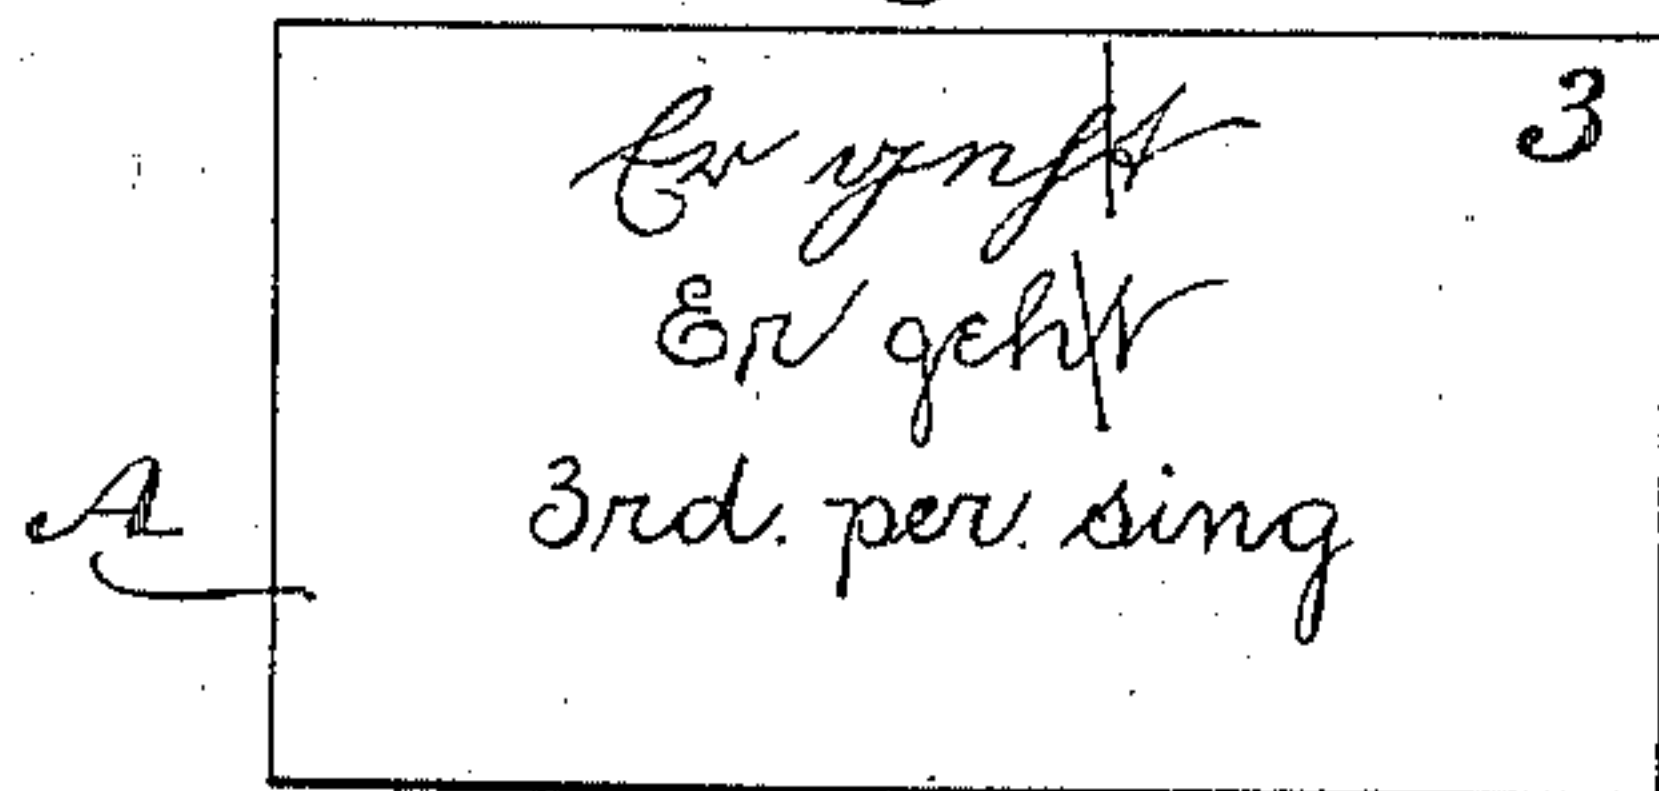 3
Er geh|t
Er geh|t
3rd. per. sing
A